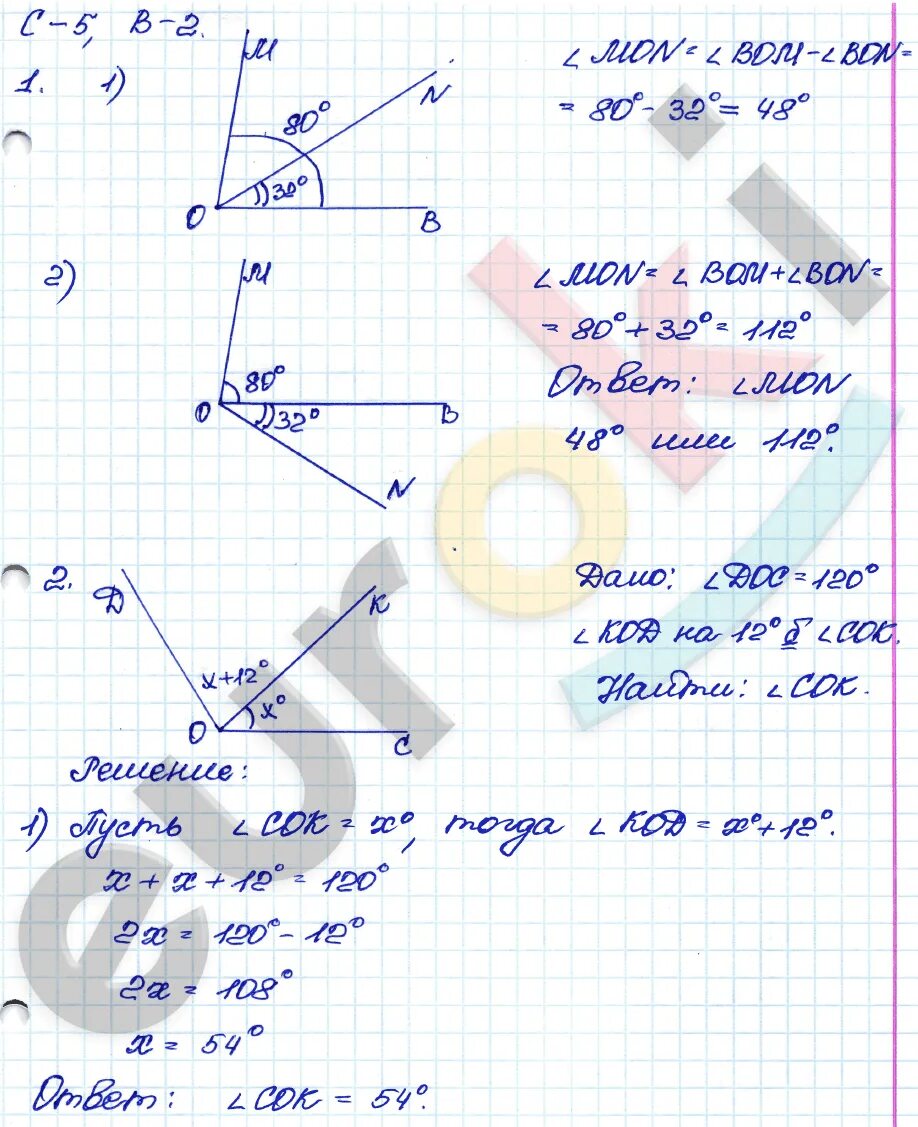 С-5, В-2.
1. 1)
M
N
80°
32°
O
B
∠MON = ∠BOM - ∠BON =
= 80° - 32° = 48°
2)
M
80°
O
32°
B
N
∠MON = ∠BOM + ∠BON =
= 80° + 32° = 112°
Ответ: ∠MON
48° или 112°.
2.
D
K
x+12°
x°
O
C
Дано: ∠DOC = 120°
∠KOD на 12° б ∠COK.
Найти: ∠COK.
Решение:
1) Пусть ∠COK = x°, тогда ∠KOD = x° + 12°.
x + x + 12° = 120°
2x = 120° - 12°
2x = 108°
x = 54°
Ответ: ∠COK = 54°.
euroki